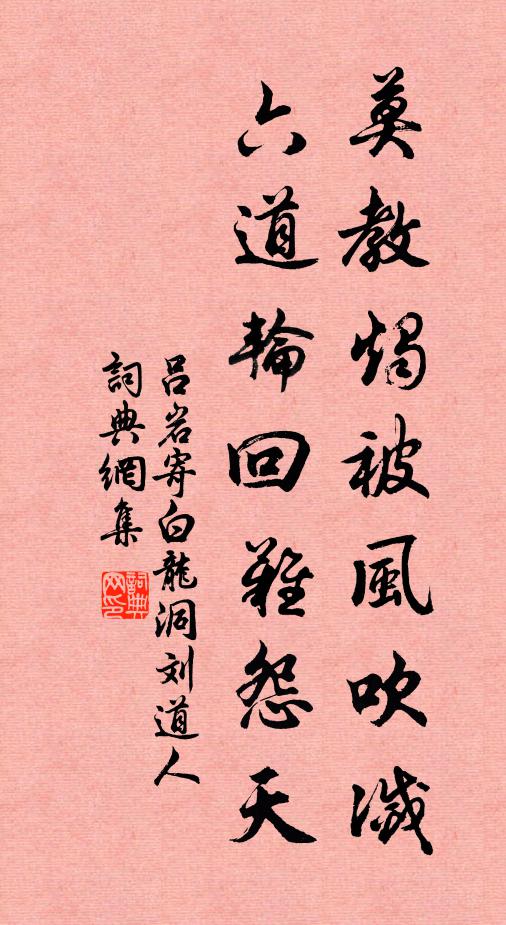 莫教燭被風吹滅
六道輪回難怨天
吕岩寄白龍洞刘道人
詞典網集
詞典网印